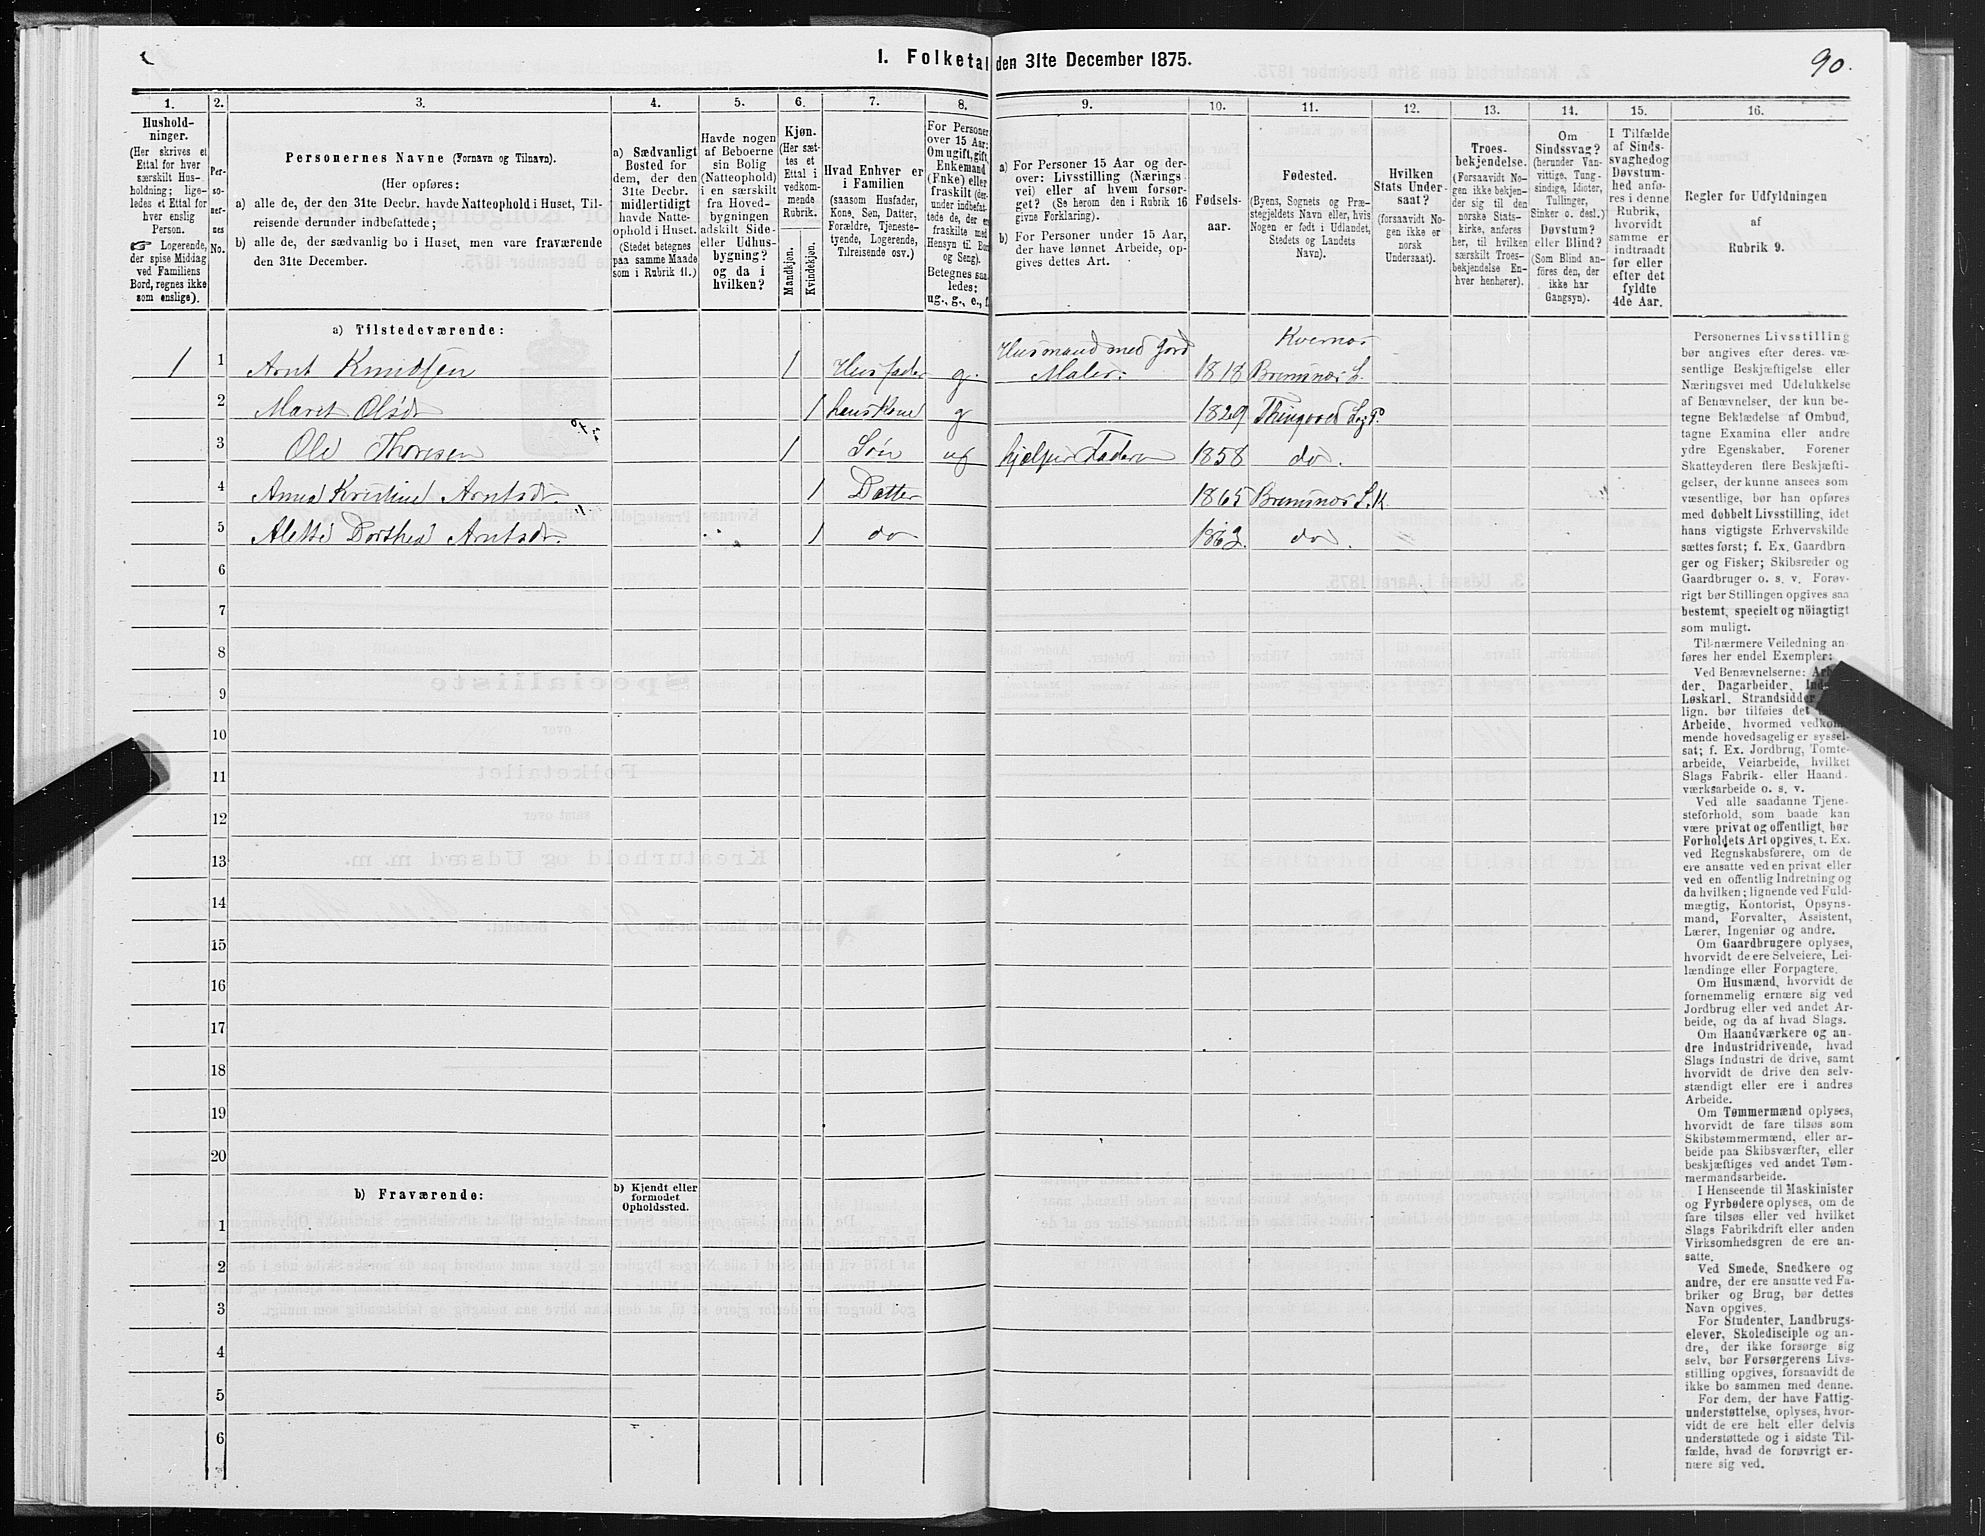 1. Folketal den 31te December 1875.
90.
1. 2. 3. 4. 5. 6. 7. 8. 9. 10. 11. 12. 13. 14. 15. 16.
Hushold-
ninger.
(Her skrives et
Ettal for hver
særskilt Hus-
holdning; lige-
ledes et Ettal for
hver enslig
Person.
☞ Logerende,
der spise Middag
ved Familiens
Bord, regnes ikke
som enslige).
Per-
so-
ner-
nes
No.
Personernes Navne (Fornavn og Tilnavn).
(Her opføres:
a) alle de, der den 31te Decbr. havde Natteophold i Huset, Til-
reisende derunder indbefattede;
b) alle de, der sædvanlig bo i Huset, men vare fraværende
den 31te December.
a) Sædvanligt
Bosted for
dem, der den
31te Decbr.
midlertidigt
havde Natte-
ophold i Huset.
(Stedet betegnes
paa samme Maade
som i Rubrik 11.)
Havde nogen
af Beboerne
sin Bolig
(Natteophold)
i en særskilt
fra Hoved-
bygningen
adskilt Side-
eller Udhus-
bygning?
og da i
hvilken?
Kjøn.
(Her sæt-
tes et
Ettal i
vedkom-
mende
Rubrik.
Mandkjøn.
Kvindekjøn.
Hvad Enhver er
i Familien
(saasom Husfader,
Kone, Søn, Datter,
Forældre, Tjeneste-
tyende, Logerende,
Tilreisende osv.)
For Personer
over 15 Aar:
Om ugift, gift,
Enkemand
(Enke) eller
fraskilt (der-
under indbefat-
tede de, der er
fraskilte med
Hensyn til Bord
og Seng).
Betegnes saa-
ledes:
ug., g., e., f.
a) For Personer 15 Aar og der-
over: Livsstilling (Nærings-
vei) eller af hvem forsør-
get? (Se herom den i Rubrik 16
givne Forklaring).
b) For Personer under 15 Aar,
der have lønnet Arbeide, op-
gives dettes Art.
Fødsels-
aar.
Fødested.
(Byens, Sognets og Præ-
stegjeldets Navn eller, hvis
Nogen er født i Udlandet,
Stedets og Landets
Navn).
Hvilken
Stats Under-
saat?
(forsaavidt No-
gen ikke er
norsk
Undersaat).
Troes-
bekjendelse.
(Forsaavidt No-
gen ikke bekjen-
der sig til den
norske Stats-
kirke, anføres
her, til hvilken
særskilt Troes-
bekjendelse En-
hver henhører).
Om
Sindssvag?
(herunder Van-
vittige, Tung-
sindige, Idioter,
Tullinger,
Sinker o. desl.)
Døvstum?
eller Blind?
(Som Blind an-
føres den, der
ikke har
Gangsyn).
I Tilfælde
af Sinds-
svaghed og
Døvstum-
hed anfø-
res i denne
Rubrik,
hvorvidt
samme er
indtraadt
før eller
efter det
fyldte
4de Aar.
Regler for Udfyldningen
af
Rubrik 9.
a) Tilstedeværende:
1 1 Arnt Knudsen 1 Husfader g. Husmand med Jord Maler 1818 Kvernes Bremsnes S.
2 Maret Olsdt 1 hans Kone g 1829 Thingvold S og P.
3 Ole Thoresen 1 Søn ug hjelper Faderen 1858 do.
4 Anna Kristine Arntsdt. 1 Datter 1865 Bremsnes S. K.
5 Alette Dorthea Arntsdt. 1 do 1862. do.
6
7
8
9
10
11
12
13
14
15
16
17
18
19
20
b) Fraværende:
b) Kjendt eller
formodet
Opholdssted.
1
2
3
4
5
6
Personernes Livsstilling
bør angives efter deres væ-
sentlige Beskjæftigelse eller
Næringsvei med Udelukkelse
af Benævnelser, der kun be-
tegne Beklædelse af Ombud,
tagne Examina eller andre
ydre Egenskaber. Forener
Skatteyderen flere Beskjæfti-
gelser, der kunne ansees som
væsentlige, bør han opføres
med dobbelt Livsstilling, idet
hans vigtigste Erhvervskilde
sættes først; f. Ex. Gaardbru-
ger og Fisker; Skibsreder og
Gaardbruger o. s. v. Forøv-
rigt bør Stillingen opgives saa
bestemt, specielt og nöiagtigt
som muligt.
Til nærmere Veiledning an-
føres her endel Exempler:
Ved Benævnelserne:
der, Dagarbeider,
Løskarl, Strandsidder
lign. bør tilføies det
Arbeide, hvormed vedkom-
mende hovedsagelig er syssel-
sat; f. Ex. Jordbrug, Tomte-
arbeide, Veiarbeide, hvilket
Slags Fabrik- eller Haand-
værksarbeide o. s. v.
Ved alle saadanne Tjene-
steforhold, som baade kan
være privat og offentligt, bør
Forholdets Art opgives, t. Ex.
ved Regnskabsførere, om de
ere ansatte ved en privat eller
ved en offentlig Indretning og
da hvilken; lignende ved Fuld-
mægtig, Kontorist, Opsyns-
mand, Forvalter, Assistent,
Lærer, Ingeniør og andre.
Om Gaardbrugere oplyses,
hvorvidt de ere Selveiere, Lei-
lændinge eller Forpagtere.
Om Husmænd, hvorvidt de
fornemmelig ernære sig ved
Jordbrug eller ved andet Ar-
beide, og da af hvad Slags.
Om Haandværkere og an-
dre Industridrivende, hvad
Slags Industri de drive, samt
hvorvidt de drive den selv-
stændigt eller ere i andres
Arbeide.
Om Tømmermænd oplyses,
hvorvidt de fare tilsøs som
Skibstømmermænd, eller ar-
beide paa Skibsværfter, eller
beskjæftiges ved andet Tøm-
mermandsarbeide.
I Henseende til Maskinister
og Fyrbødere oplyses, om de
fare tilsøs eller ved hvilket
Slags Fabrikdrift eller anden
Virksomhedsgren de ere an-
satte.
Ved Smede, Snedkere og
andre, der ere ansatte ved Fa-
briker og Brug, bør dettes
Navn opgives.
For Studenter, Landbrugs-
elever, Skoledisciple og an-
dre, der ikke forsørge sig
selv, bør Forsørgerens Livs-
stilling opgives, forsaavidt de
ikke bo sammen med denne.
For dem, der have Fattig-
understøttelse, oplyses, hvor-
vidt de ere helt eller delvis
understøttede og i sidste Til-
fælde, hvad de forøvrigt er-
nære sig ved.